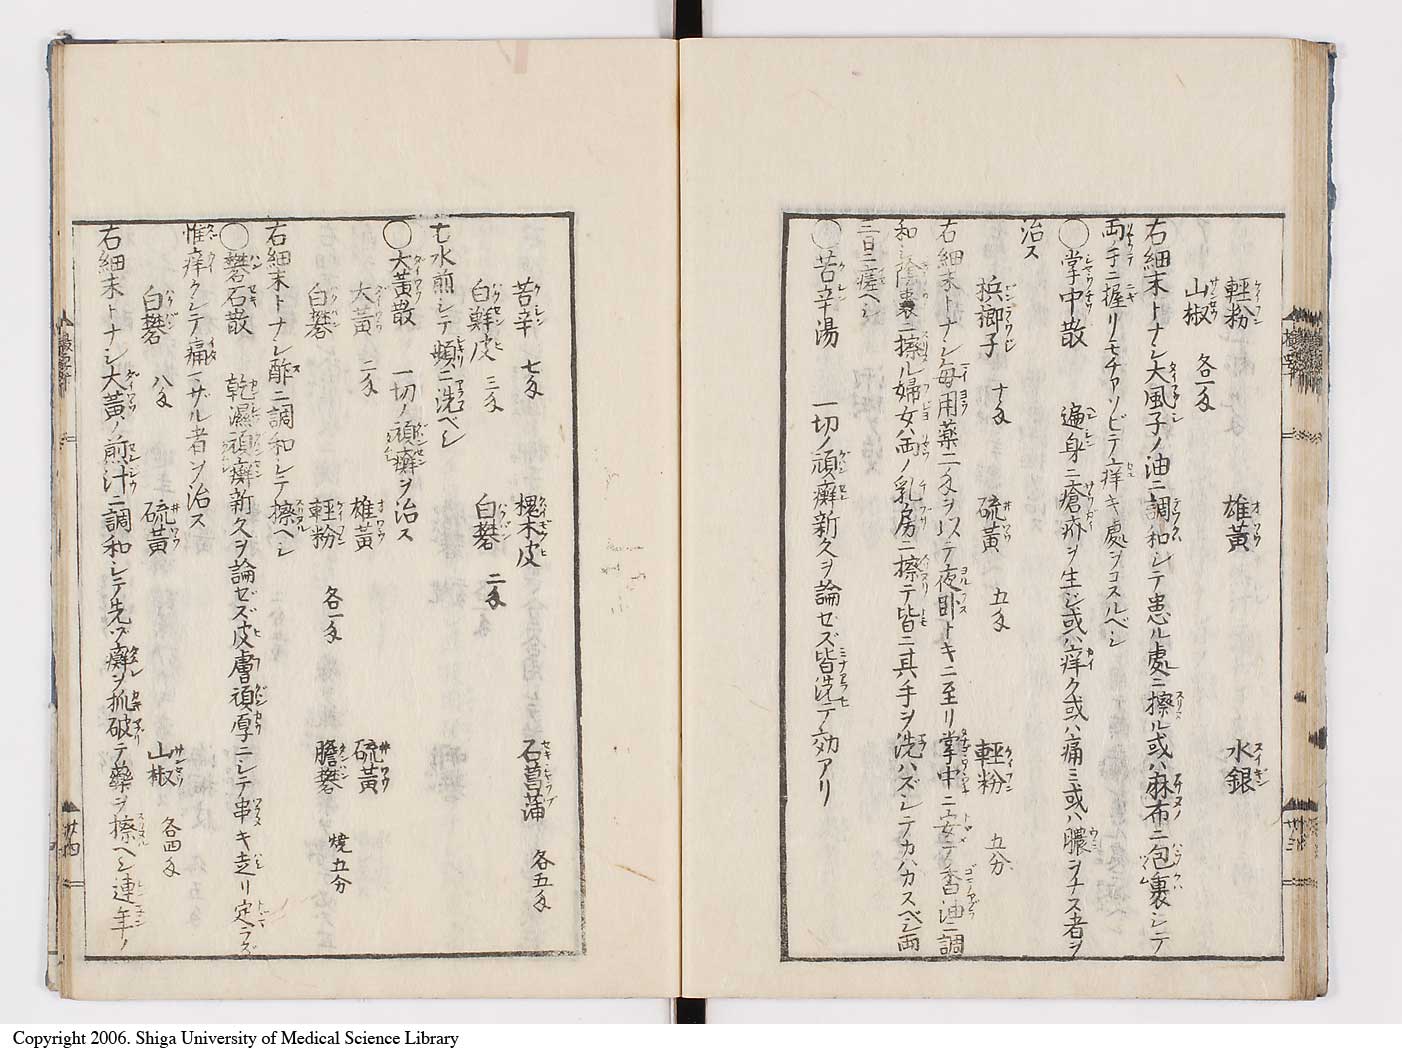 輕粉 雄黃 水銀
山椒 各一匁
右細末トナシ大風子ノ油ニ調和シテ患ル處ニ擦ル或ハ麻布ニ包裹シテ
両ノ手ニ握リモチアソビテ痒キ處ヲコスルベシ
◯掌中散 遍身ニ瘡疥ヲ生ジ或ハ痒ク或ハ痛ミ或ハ膿ヲナス者ヲ
治ス
梹榔子 十匁 硫黃 五匁 輕粉 五分
右細末トナシ毎用薬二匁ヲ以テ夜卧トキニ至リ掌中ニ安テ香油ニ調
和シ陰囊ニ擦ル婦女ハ両ノ乳房ニ擦テ皆ニ其手ヲ洗ハズシテカハカスベシ両
三日ニ瘥ベシ
◯苦辛湯 一切ノ頑癬新久ヲ論ゼズ皆洗テ効アリ
苦辛 七匁 槐木皮 石菖蒲 各五匁
白鮮皮 三匁 白礬 二匁
七水煎シテ頻ニ洗ベシ
◯大黃散 一切ノ頑癬ヲ治ス
大黃 二匁 雄黃 硫黃
白礬 輕粉 各一匁 膽礬 焼五分
右細末トナシ酢ニ調和シテ擦ベシ
◯礬石散 乾濕頑癬新久ヲ論ゼズ皮膚頑厚ニシテ串キ走リ定ラズ
惟痒クシテ痛マザル者ヲ治ス
白礬 八匁 硫黃 山椒 各四匁
右細末トナシ大黃ノ煎汁ニ調和シテ先ヅ癬ヲ抓破テ藥ヲ擦ベシ連年ノ
廿三
廿四
Copyright 2006. Shiga University of Medical Science Library